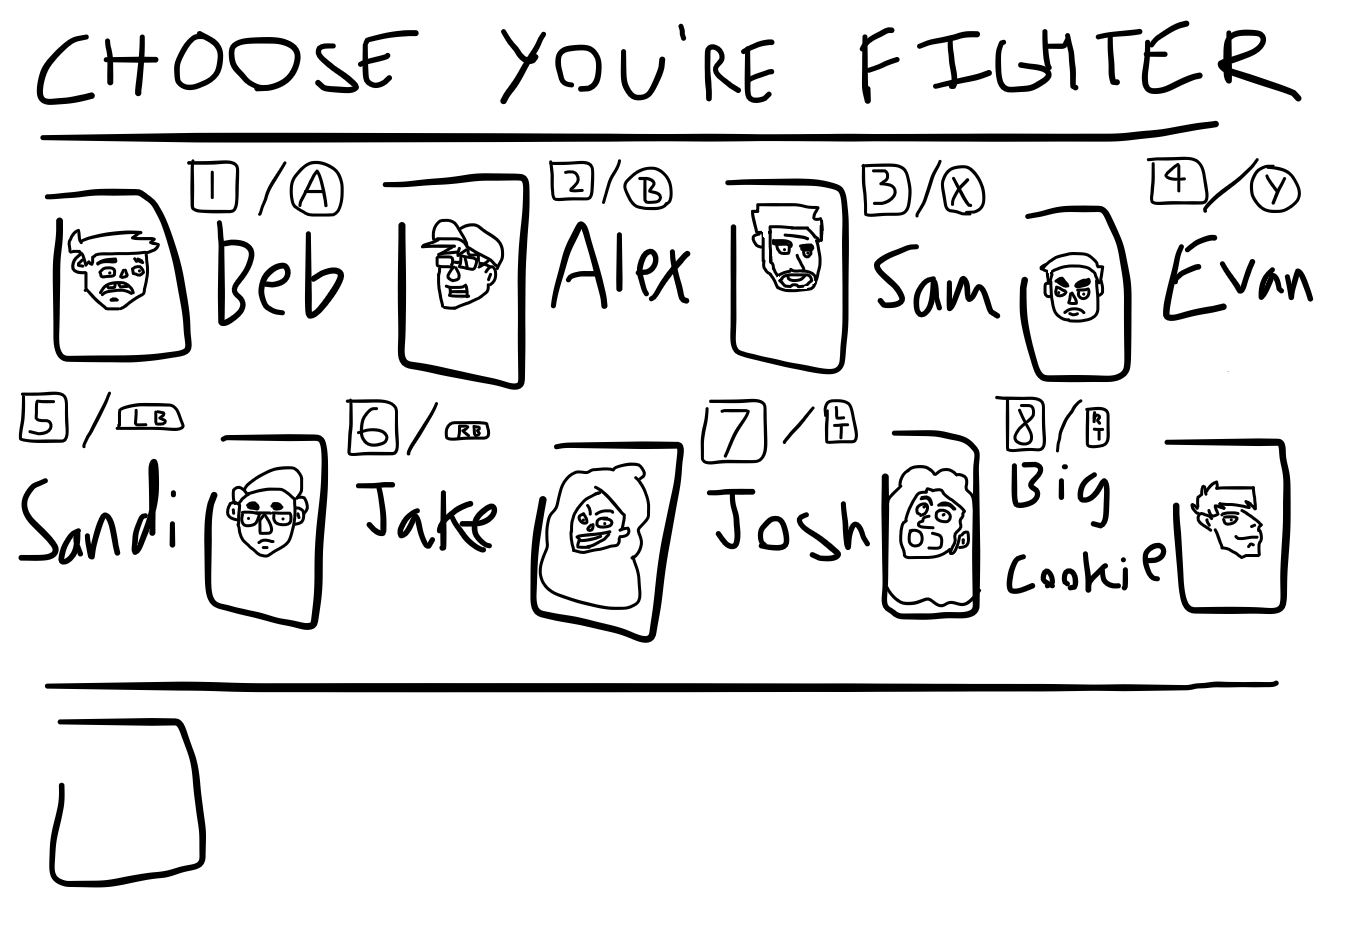 CHOOSE YOU'RE FIGHTER
1 / A
Beb
2 / B
Alex
3 / X
Sam
4 / Y
Evan
5 / LB
Sandi
6 / RB
Jake
7 / LT
Josh
8 / RT
Big
Cookie